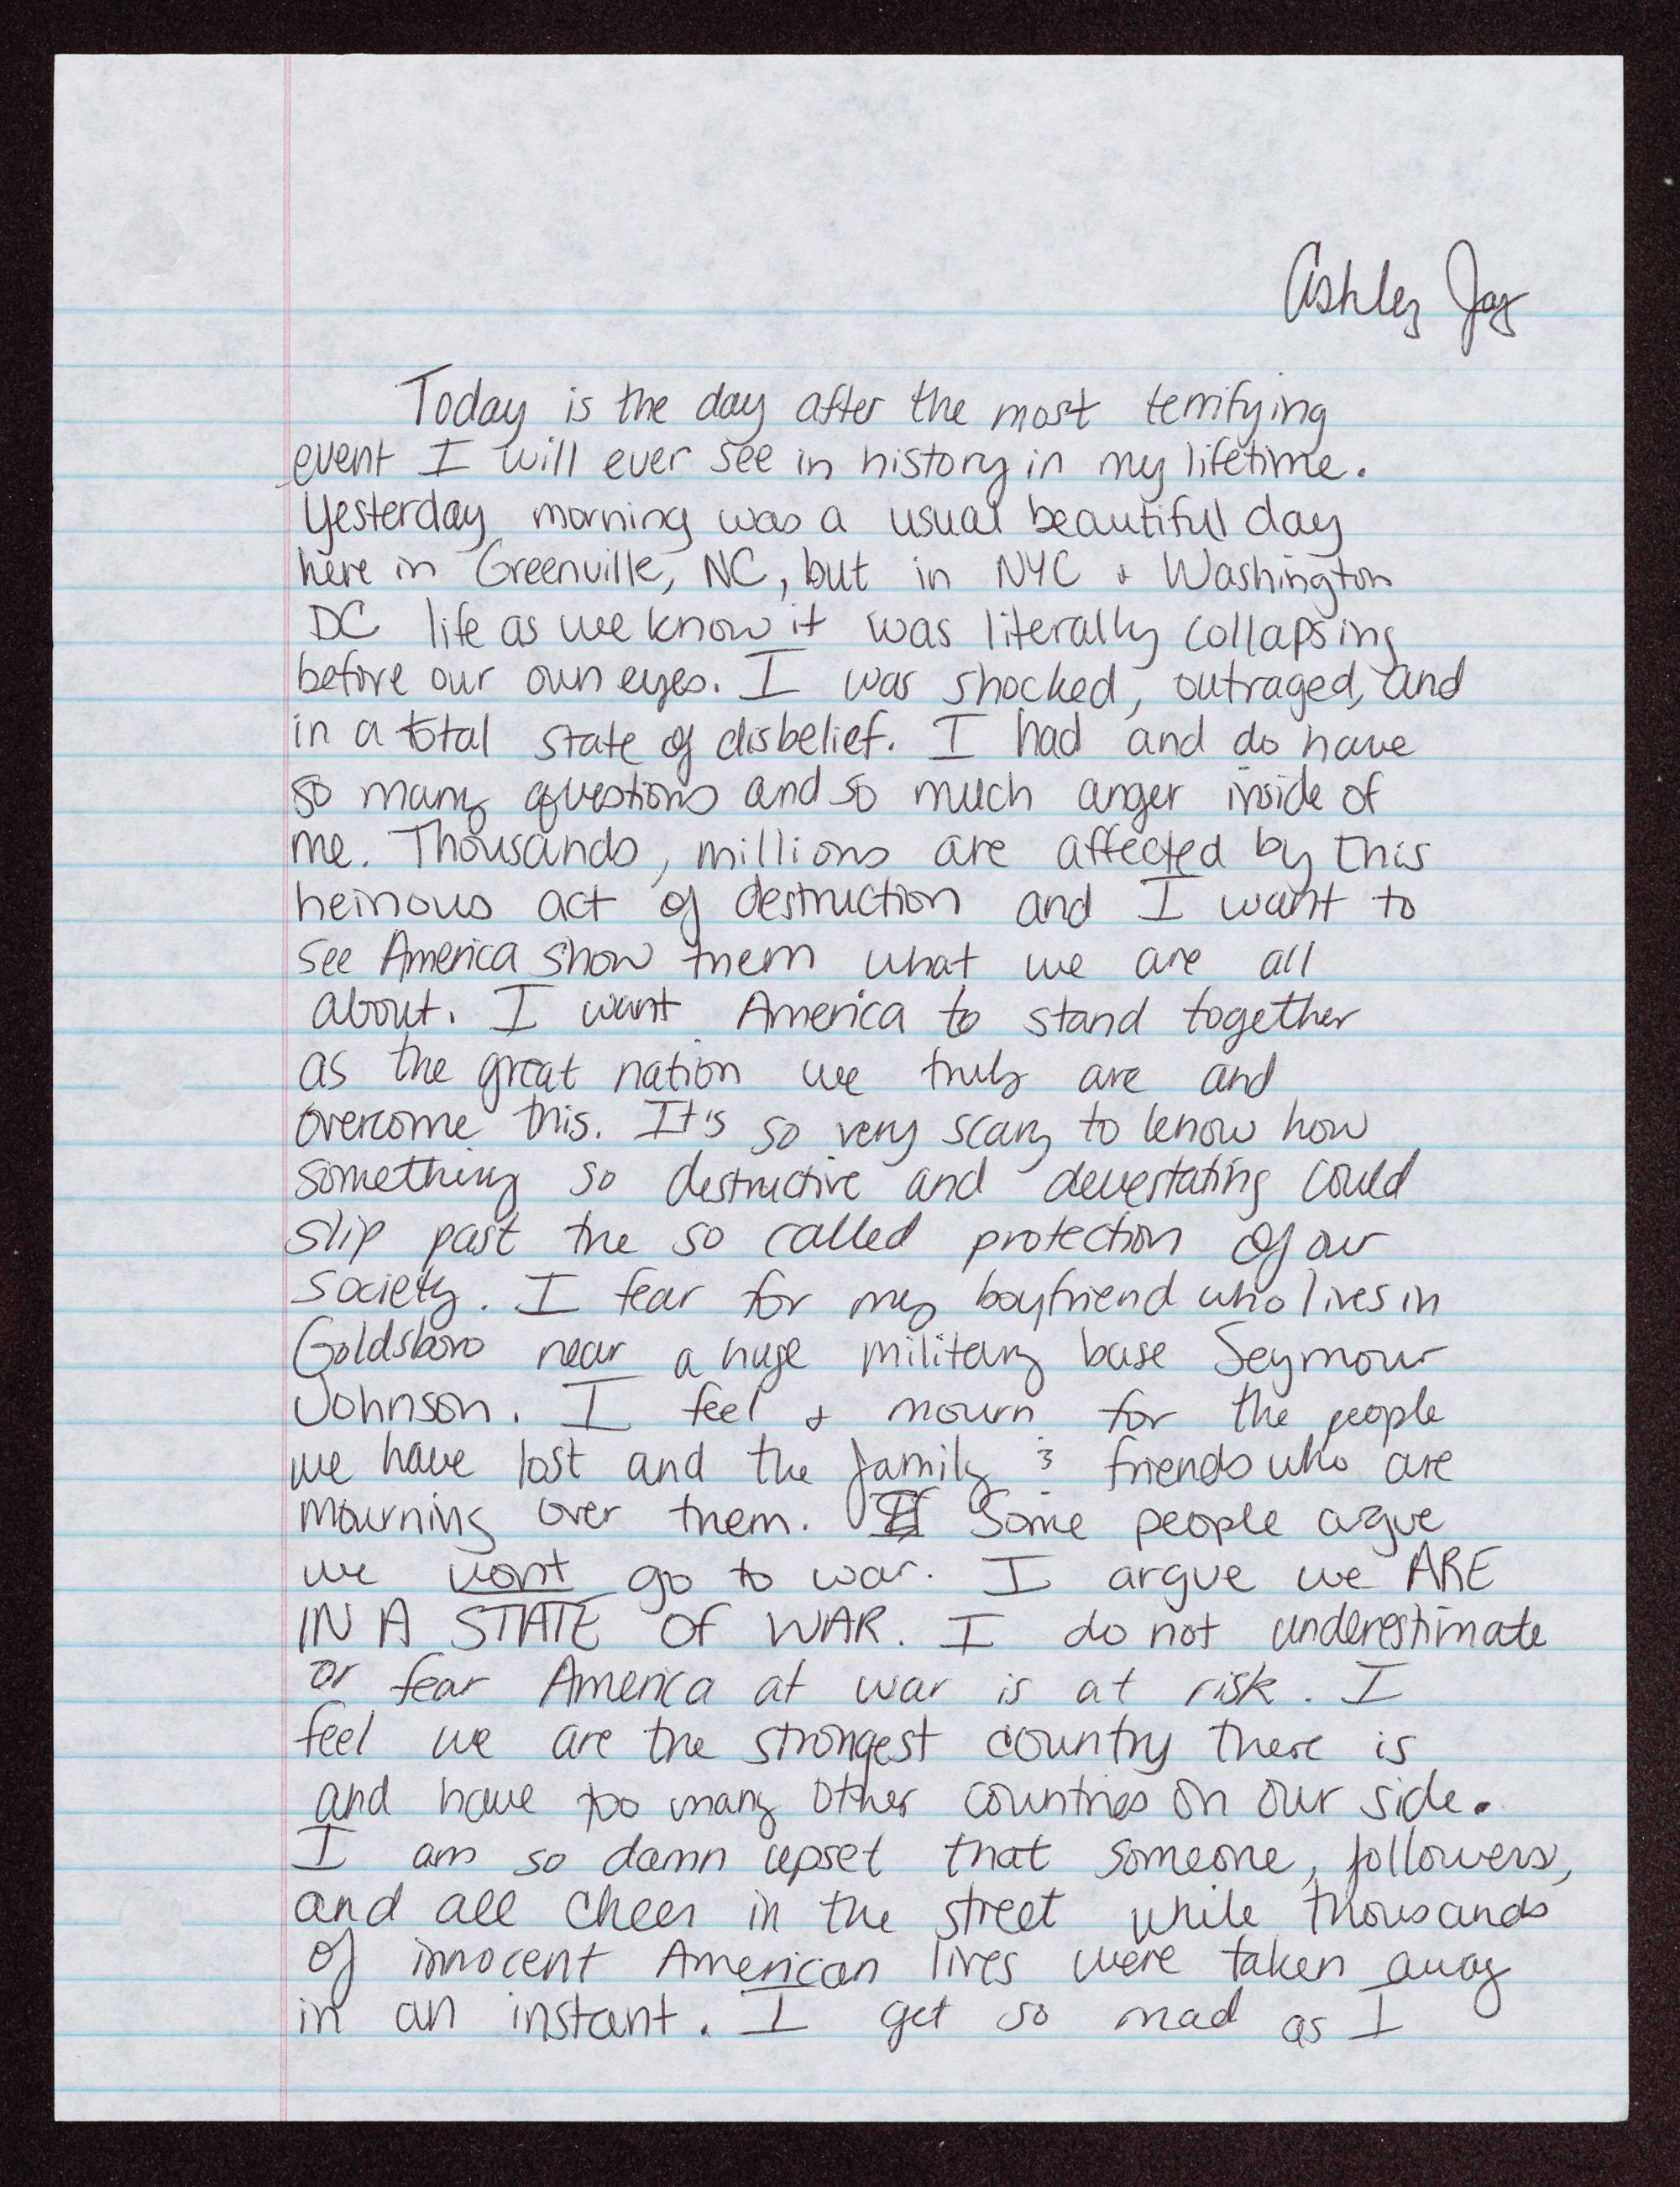 Ashley Joy
Today is the day after the most terrifying
event I will ever see in history in my lifetime.
Yesterday morning was a usual beautiful day
here in Greenville, NC, but in NYC & Washington
DC life as we know it was literally collapsing
before our own eyes. I was shocked, outraged, and
in a total state of disbelief. I had and do have
so many questions and so much anger inside of
me. Thousands, millions are affected by this
heinous act of destruction and I want to
see America show them what we are all
about. I want America to stand together
as the great nation we truly are and
overcome this. It's so very scary to know how
something so destructive and devestating could
slip past the so called protection of our
society. I fear for my boyfriend who lives in
Goldsboro near a huge military base Seymour
Johnson. I feel & mourn for the people
we have lost and the family & friends who are
mourning over them. Some people argue
we wont go to war. I argue we ARE
IN A STATE OF WAR. I do not underestimate
or fear America at war is at risk. I
feel we are the strongest country there is
and have too many other countries on our side.
I am so damn upset that someone, followers,
and all cheer in the street while thousands
of innocent American lives were taken away
in an instant. I get so mad as I